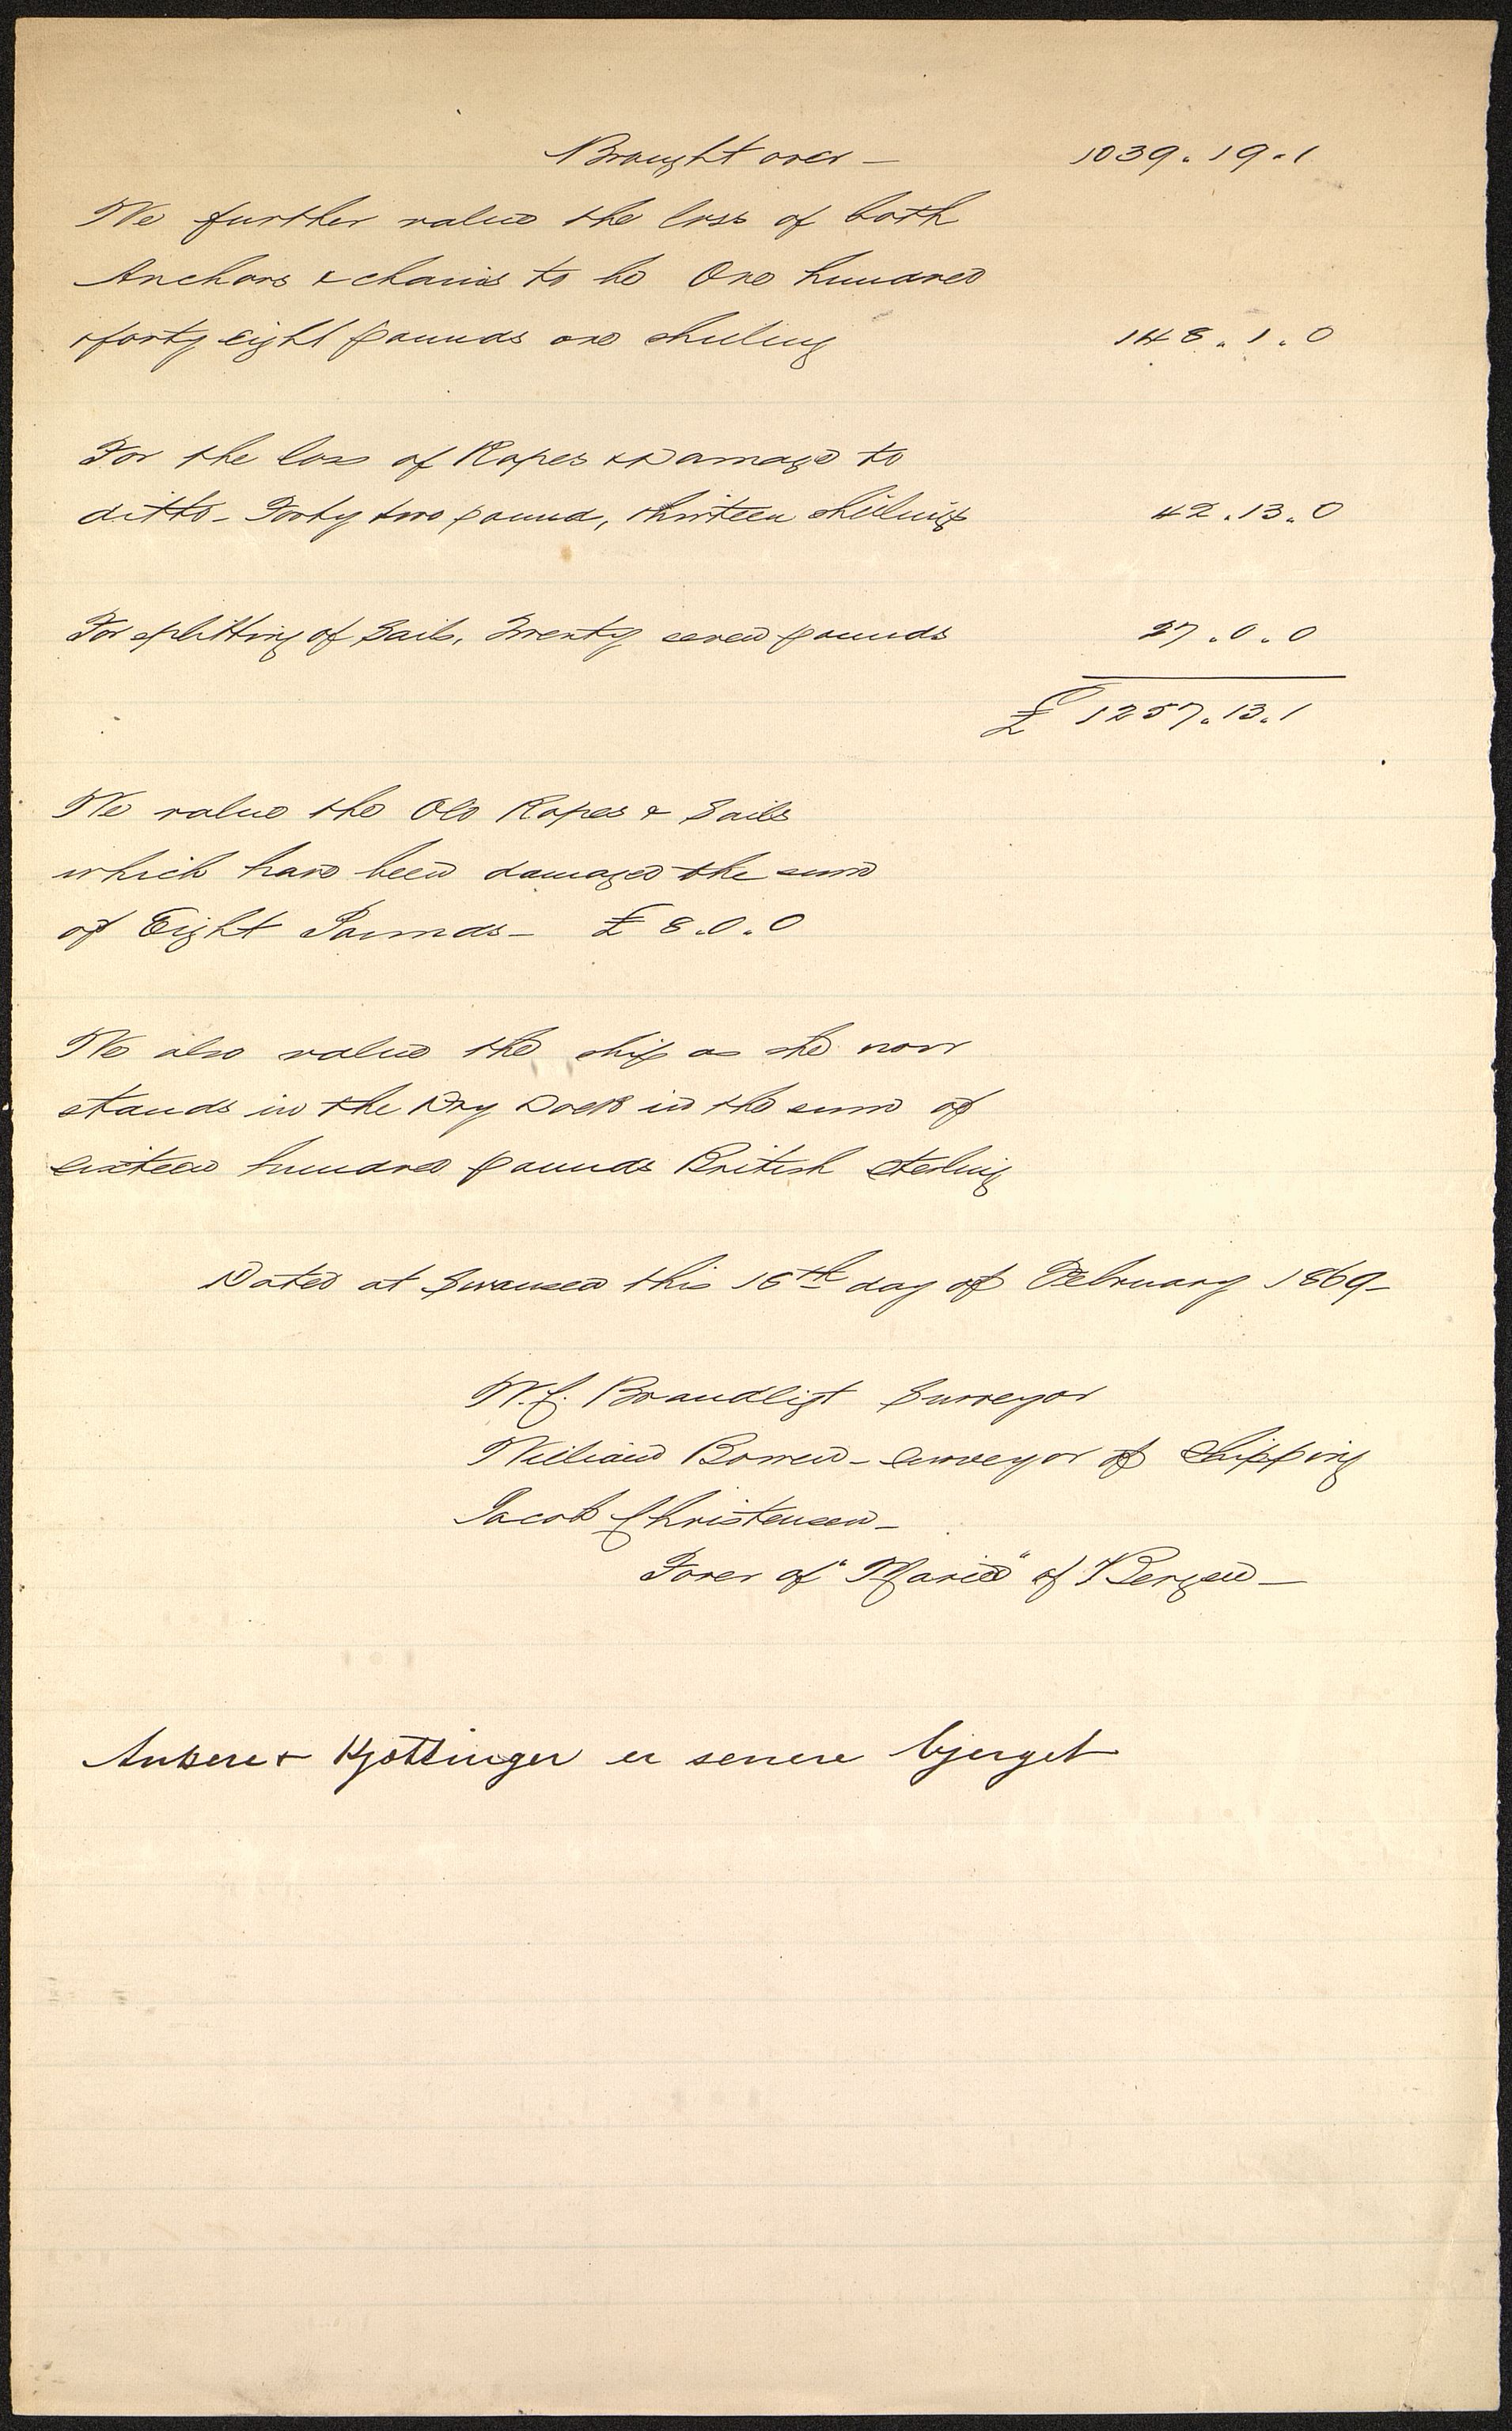 Brought over — 1039.19.1
We further value the loss of both
Anchors & chains to be One hundred
& forty eight pounds one shilling 148.1.0
For the loss of Ropes & Damage to
ditto – Forty two pound, thirteen shillings 42.13.0
For splitting of Sails, Twenty seven pounds 27.0.0
£ 1257.13.1
We value the Old Ropes & Sails
which have been damaged the sum
of Eight Pounds – £ 8.0.0
We also value the ship as she now
stands in the Dry Dock in the sum of
sixteen hundred pounds British sterling
Dated at Swansea this 16th day of February 1869 –
W. C. Surveyor
William Bowen – surveyor of shipping
Jacob Christensen –
Fører of "Marie" of Bergen —
Ankere & Kjættinger er senere bjerget